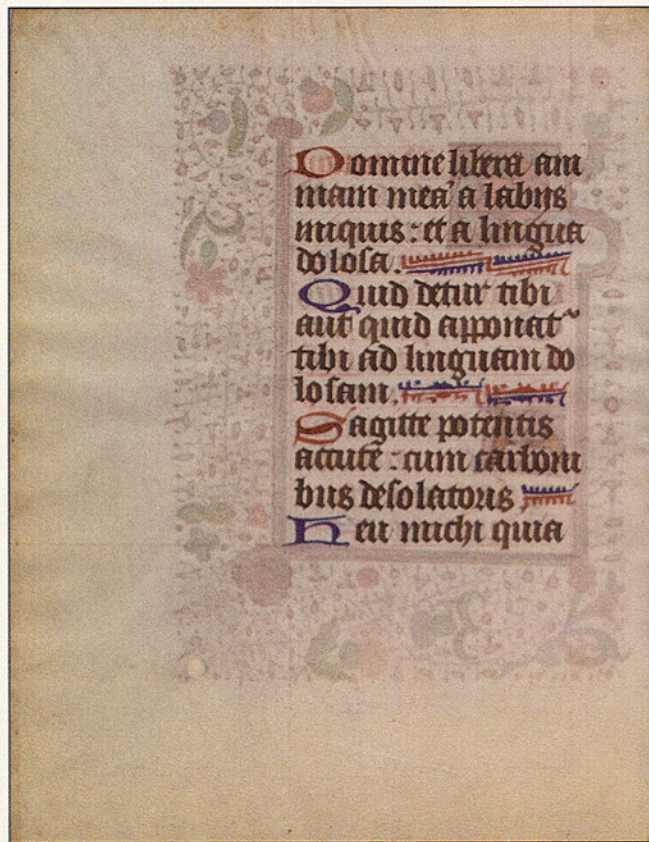 Domine libera ani
mam mea̅ a labijs
iniquis : et a lingua
dolosa.
Quid detur tibi
aut quid apponat᷑
tibi ad linguam do
losam.
Sagitte potentis
acute : cum carboni
bus desolatoriis
Heu michi quia